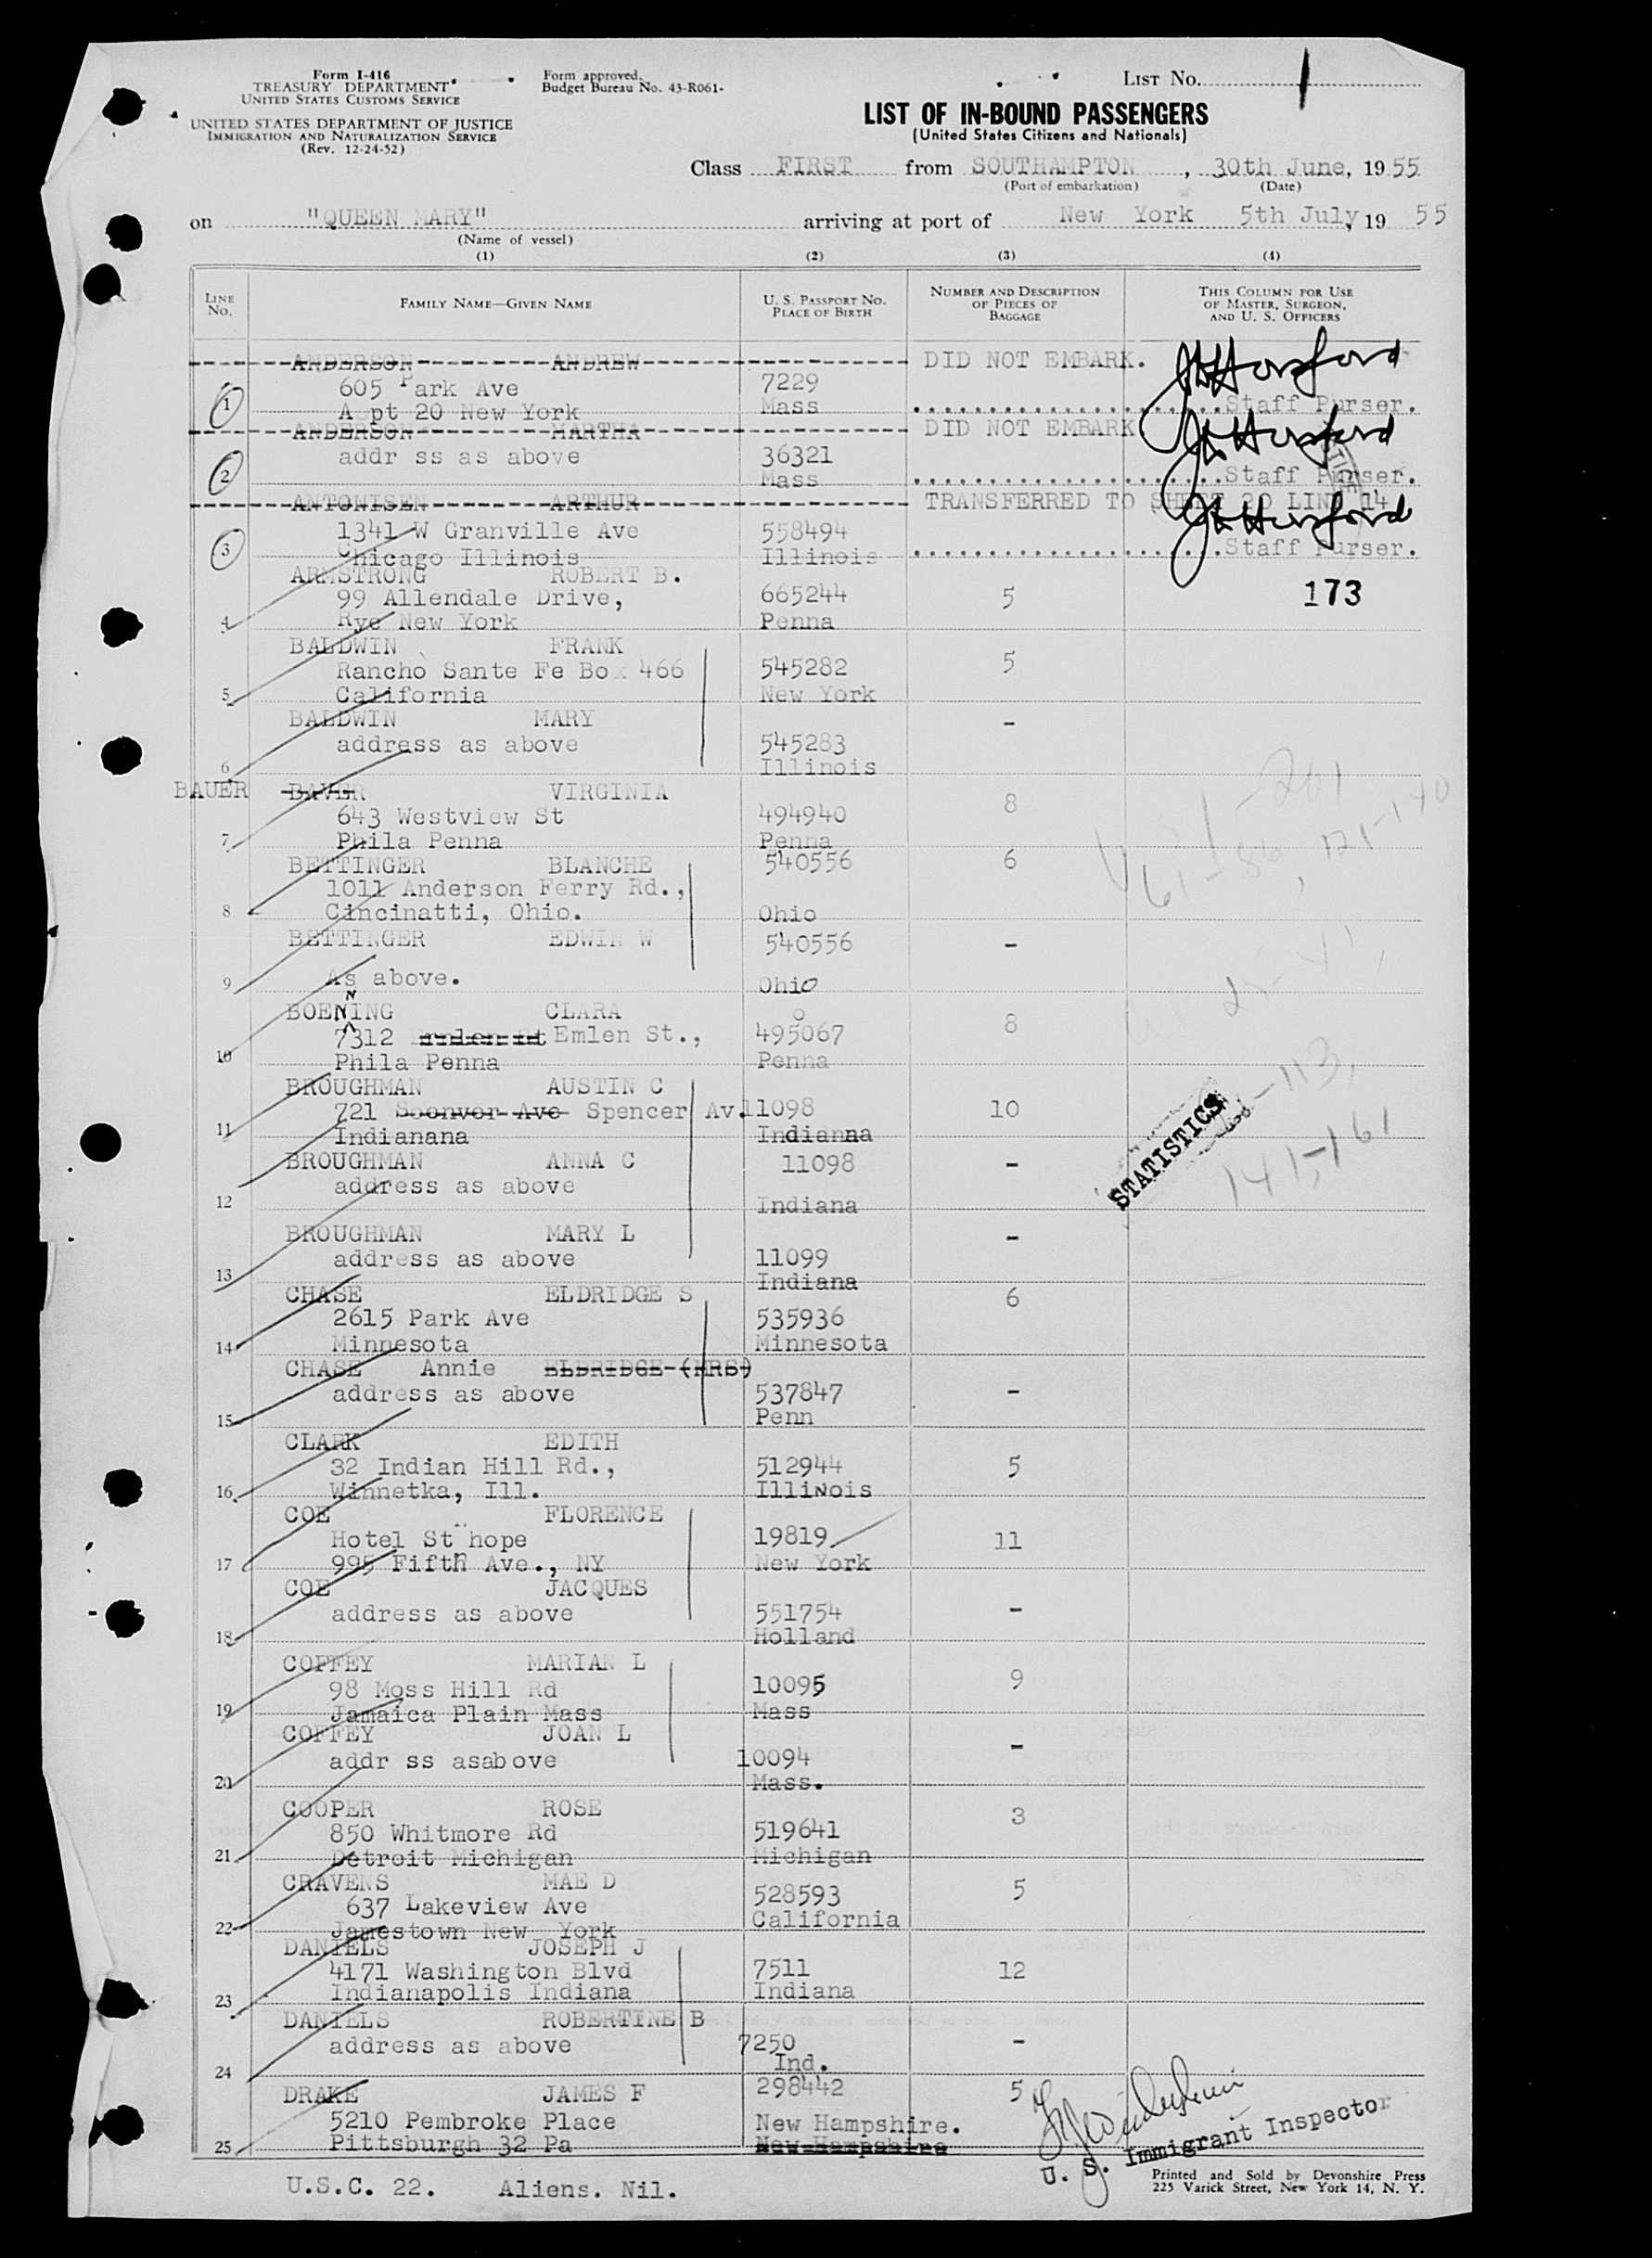 Form I-416
TREASURY DEPARTMENT
UNITED STATES CUSTOMS SERVICE
UNITED STATES DEPARTMENT OF JUSTICE
IMMIGRATION AND NATURALIZATION SERVICE
(Rev. 12-24-52)
Form approved.
Budget Bureau No. 43-R061-
LIST No. 1
LIST OF IN-BOUND PASSENGERS
(United States Citizens and Nationals)
Class FIRST from SOUTHAMPTON, 30th June, 1955
(Port of embarkation) (Date)
on "QUEEN MARY" arriving at port of New York 5th July, 19 55
(Name of vessel)
(1) (2) (3) (4)
LINE No. FAMILY NAME—GIVEN NAME U. S. PASSPORT NO. PLACE OF BIRTH NUMBER AND DESCRIPTION OF PIECES OF BAGGAGE THIS COLUMN FOR USE OF MASTER, SURGEON, AND U. S. OFFICERS
ANDERSON ANDREW DID NOT EMBARK.
605 Park Ave 7229
1 A pt 20 New York Mass Staff Purser.
ANDERSON MARTHA DID NOT EMBARK
addr ss as above 36321
2 Mass Staff Purser.
ANTONISEN ARTHUR TRANSFERRED TO SHEET 20 LINE 14
1341 W Granville Ave 558494
3 Chicago Illinois Illinois Staff Purser.
ARMSTRONG ROBERT B. 173
99 Allendale Drive, 665244 5
4 Rye New York Penna
BALDWIN FRANK
Rancho Sante Fe Box 466 545282 5
5 California New York
BALDWIN MARY -
address as above 545283
6 Illinois
BAUER BAVER VIRGINIA
643 Westview St 494940 8
7 Phila Penna Penna
BETTINGER BLANCHE 540556 6
1011 Anderson Ferry Rd.,
8 Cincinatti, Ohio. Ohio
BETTINGER EDWIN W 540556 -
9 As above. Ohio
BOENNING CLARA
7312 Emlen St., 495067 8
10 Phila Penna Penna
BROUGHMAN AUSTIN C
721 Spencer Av. 11098 10
11 Indianana Indianna
BROUGHMAN ANNA C 11098 -
address as above
12 Indiana
STATISTICS
141-161
BROUGHMAN MARY L -
address as above 11099
13 Indiana
CHASE ELDRIDGE S 6
2615 Park Ave 535936
14 Minnesota Minnesota
CHASE Annie ELDRIDGE (MRS)
address as above 537847 -
15 Penn
CLARK EDITH
32 Indian Hill Rd., 512944 5
16 Winnetka, Ill. Illinois
COE FLORENCE
Hotel St hope 19819 11
17 995 Fifth Ave., NY New York
COE JACQUES
address as above 551754 -
18 Holland
COFFEY MARIAN L
98 Moss Hill Rd 10095 9
19 Jamaica Plain Mass Mass
COFFEY JOAN L
addr ss asabove 10094 -
20 Mass.
COOPER ROSE
850 Whitmore Rd 519641 3
21 Detroit Michigan Michigan
CRAVENS MAE D
637 Lakeview Ave 528593 5
22 Jamestown New York California
DANIELS JOSEPH J
4171 Washington Blvd 7511 12
23 Indianapolis Indiana Indiana
DANIELS ROBERTINE B
address as above 7250 -
24 Ind.
DRAKE JAMES F 298442 5
5210 Pembroke Place New Hampshire.
25 Pittsburgh 32 Pa New Hampshire
U. S. Immigrant Inspector
U.S.C. 22. Aliens. Nil.
Printed and Sold by Devonshire Press
225 Varick Street, New York 14, N. Y.